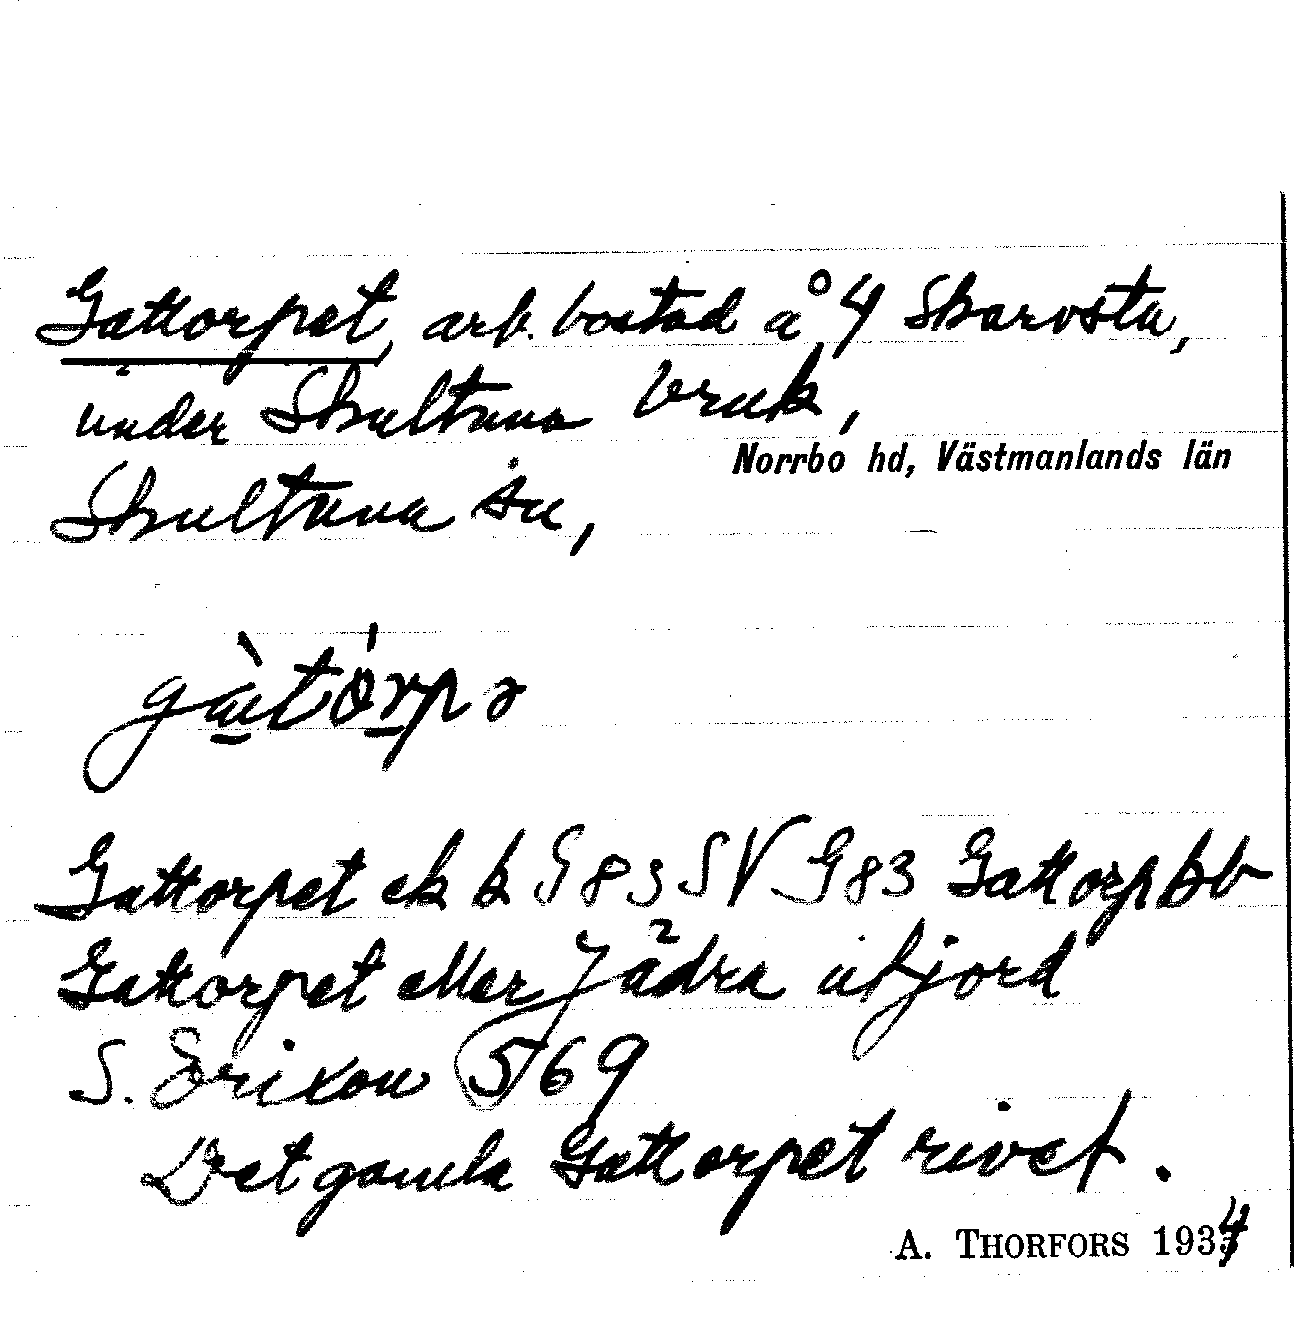 Gattorpet, arb. bostad å 4 Skarvsta,
under Skultuna bruk,
Norrbo hd, Västmanlands län
Skultuna sn,
gàtórpə
Gattorpet ek k G 83 SV G 83 Gattorp bb
Gattorpet eller Jädra utjord
S. Erixon 569
Det gamla Gattorpet rivet.
A. THORFORS 1934